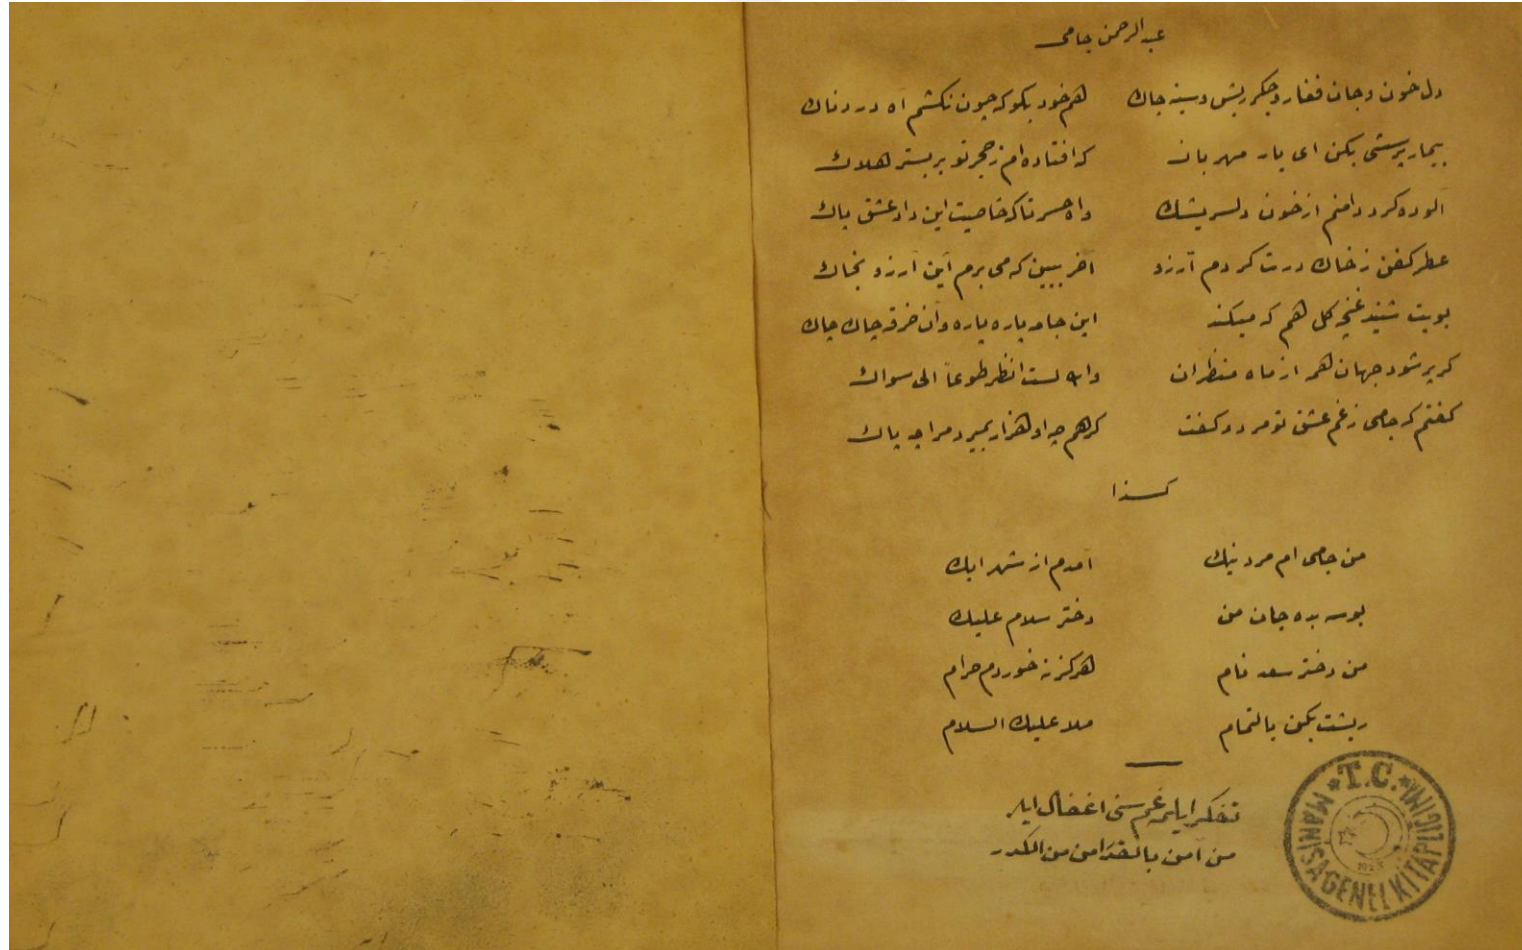 عبد الرحمن جامی
دل خون و جان فغار و جكر ریش و سینه چاك هم خود بكو كه چون نكشم آه دردناك
بیمار پرسشی بكن ای یار مهربان كه افتاده ام ز هجر تو بر بستر هلاك
آلوده كرد دامنم از خون دل سرشك واه حسرتا كه خاصیت این داد عشق پاك
عطر كفن ز خاك درت كردم آرزو آخر ببین كه می برم این آرزو بخاك
بویت شنید غنچه كل هم كه میكند این جامه پاره پاره وآن خرقه چاك چاك
كر پر شود جهان همه از ماه منظران والله لست انظر طوعاً الی سواك
كفتم كه جامی ز غم عشق تو مرد و كفت كر هم چه او هزار بمیرد مرا چه باك
كذا
من جامی ام مرد نیك آمدم از شهر ایك
بوسه بده جان من دختر سلام علیك
من دختر سعد نام هركز نه خوردم حرام
ریشت بكن بالتمام ملا علیك السلام
تفكر ایلمه غم سنی اغفال ایلر
من آمن بالقدر امن من الكدر
T.C.
MANİSA GENEL KİTAPLIĞINA